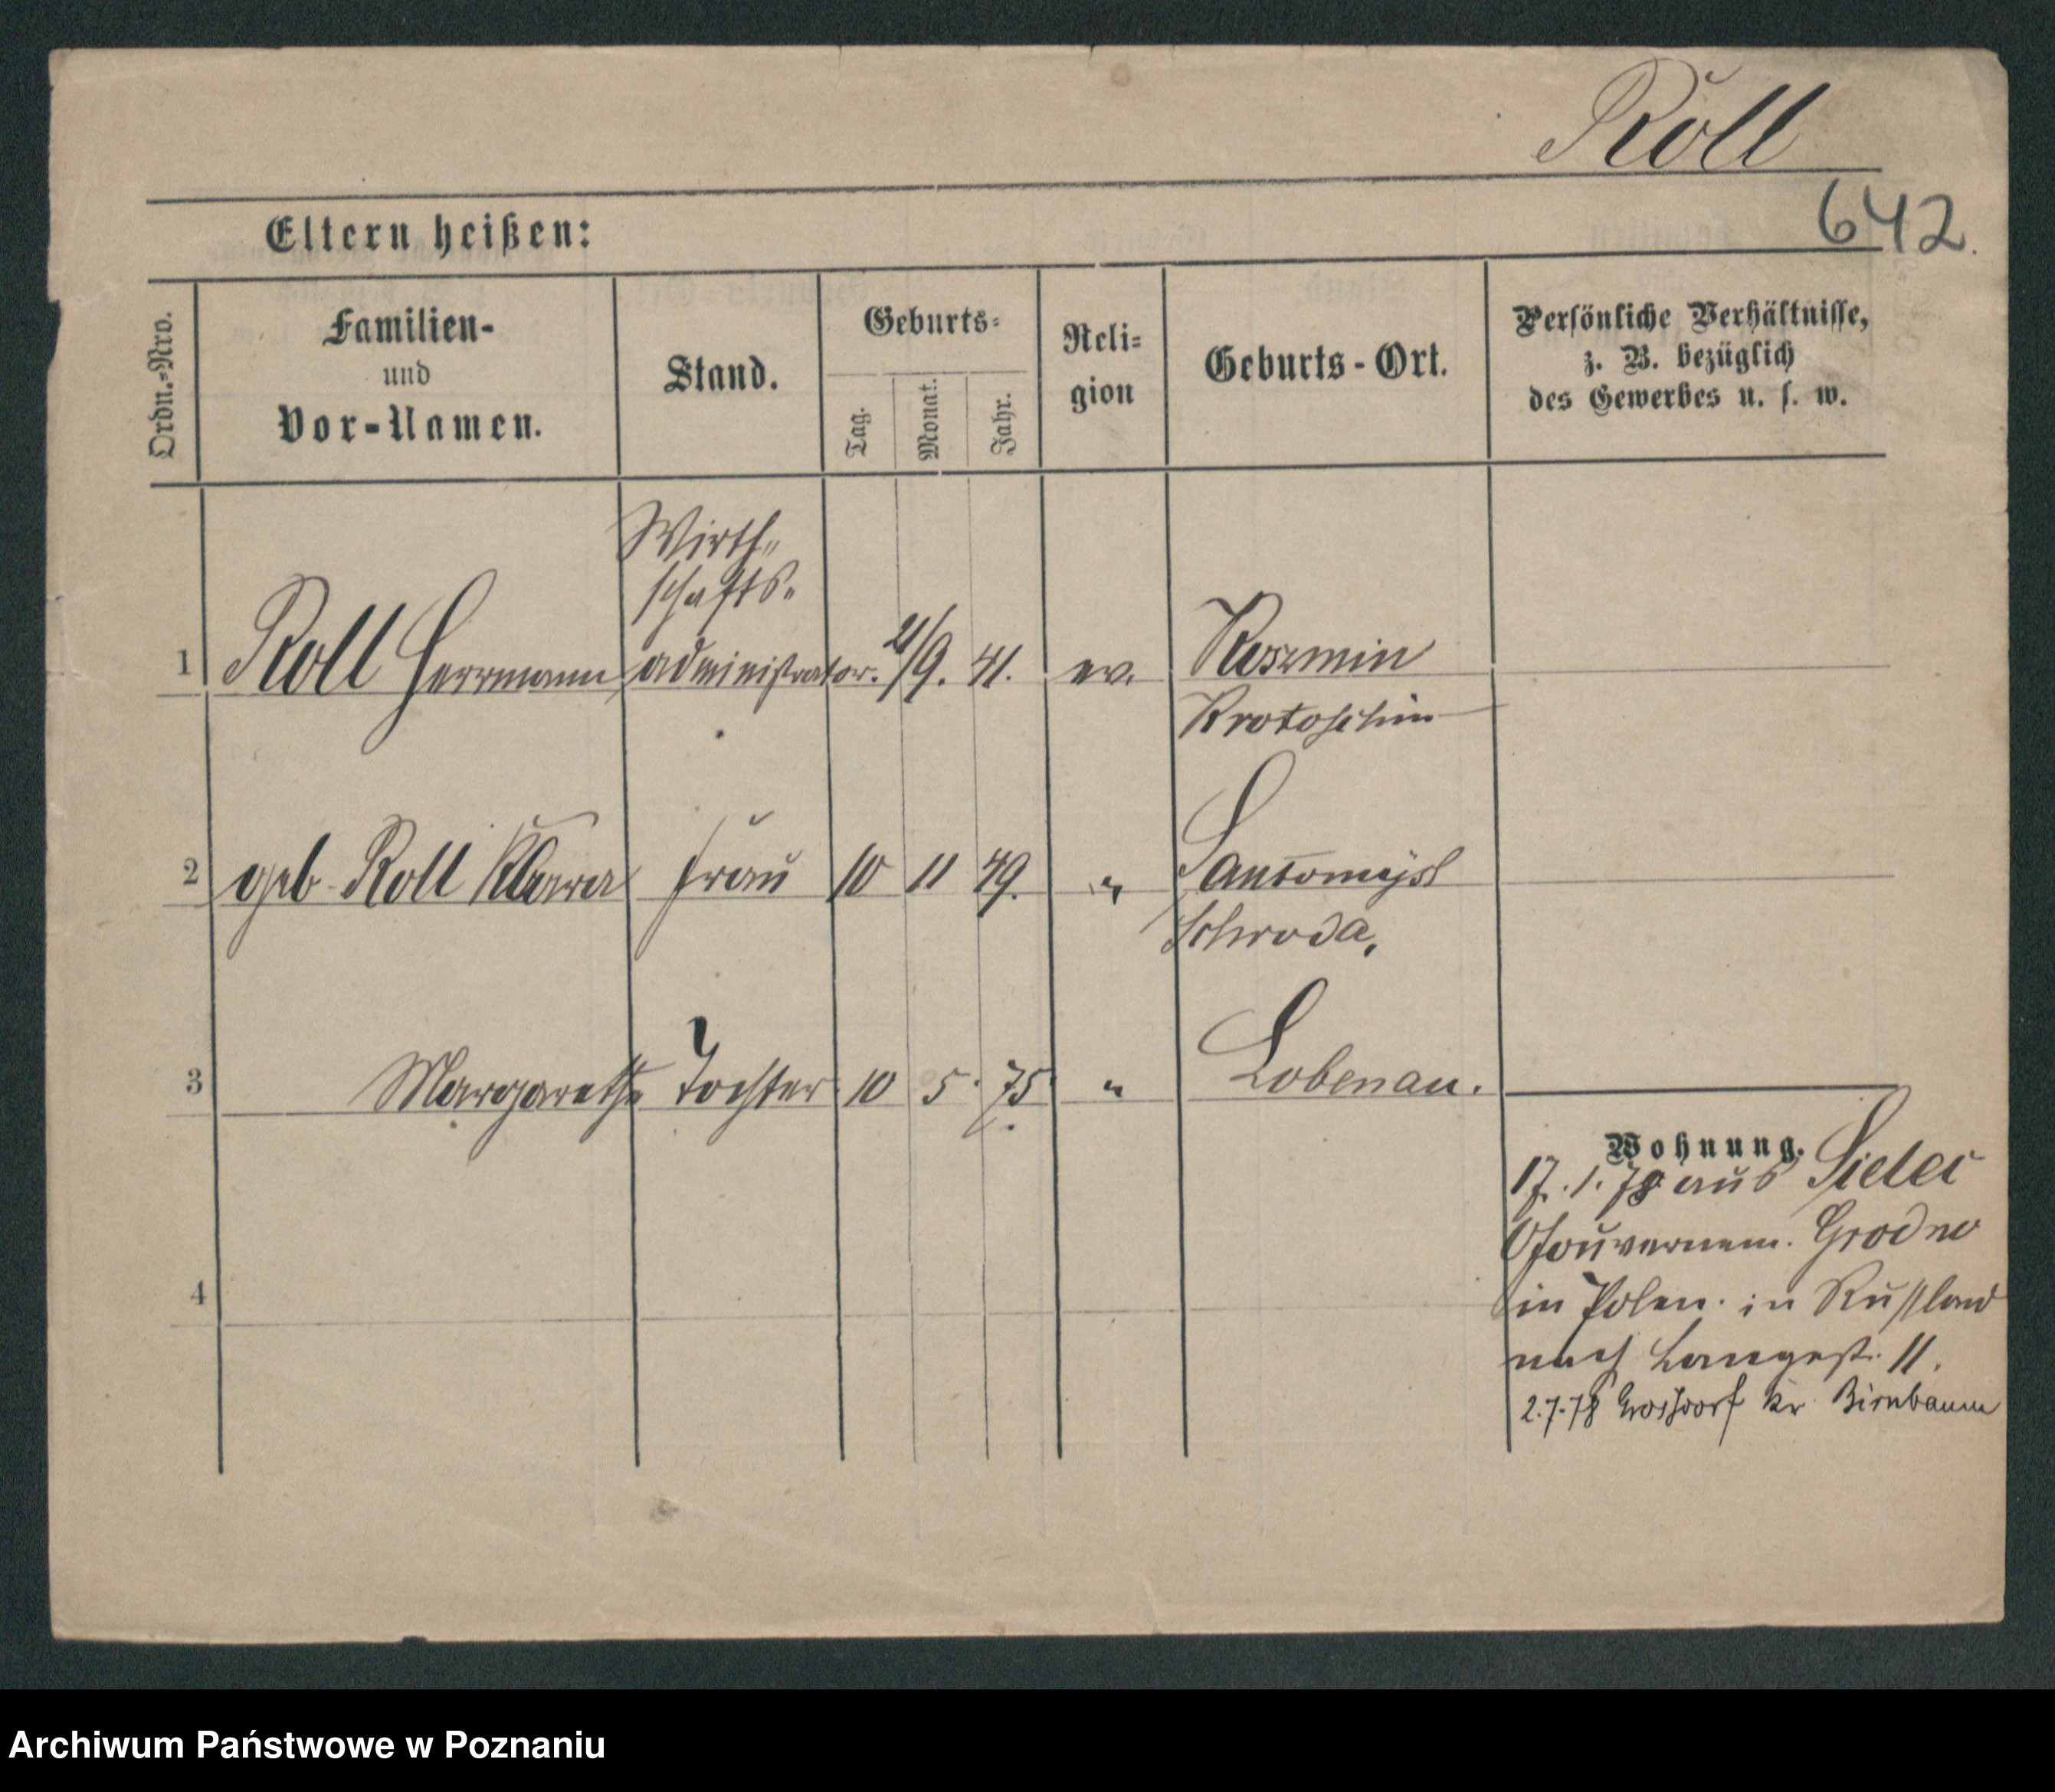 Roll
642.
Eltern heißen:
Ordn.-Nro.
Familien-
und
Vor-Namen.
Stand.
Geburts-
Tag.
Monat.
Jahr.
Reli-
gion
Geburts-Ort.
Persönliche Verhältnisse,
z. B. bezüglich
des Gewerbes u. s. w.
Wirth-
schafts-
1 Roll Herrmann administrator. 21/9. 41. ev. Koszmin
Krotoschin
2 geb. Roll Klara Frau 10 11 49. " Santomysl
Schroda,
3 Margarethe Tochter 10 5. 75. " Lobenau.
4
Wohnung.
17.1.78 aus Sielec
Gouvernem. Grodno
in Polen. in Rußland
nach Langest. 11.
2.7.78 Grosdorf Kr Birnbaum
Archiwum Państwowe w Poznaniu